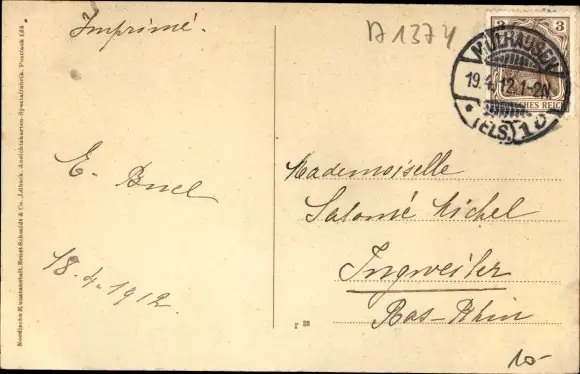 Imprimé.
D 1374
3 3
MÜLHAUSEN
19.4.12.1-2N
* (ELS.) 10
DEUTSCHES REICH
E. Buel
18-4-1912.
Mademoiselle
Salomé Michel
Ingweiler
Bas-Rhin
10-
Nordische Kunstanstalt, Ernst Schmidt & Co., Lübeck. Ansichtskarten-Spezialfabrik. Postfach 124